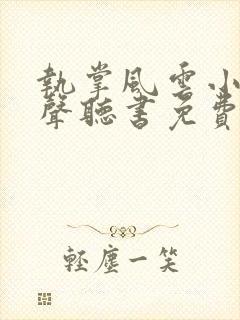 執掌風雲小
聲聽書免費
輕塵一笑